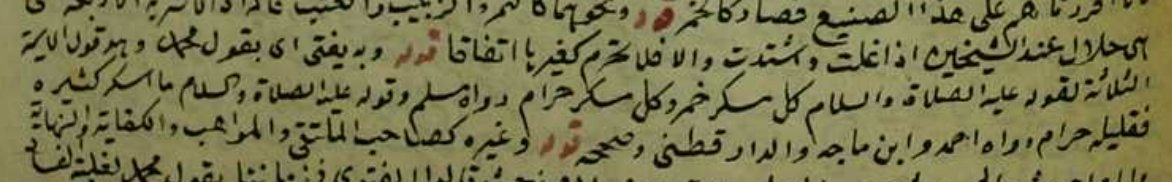 هم على هذا الصنيع فصار كالخمر قوله ونحوهما كالتمر والزبيب والعنب
هي حلال عند الشيخين اذا غلت واشتدت والا فلا تحرم كغيرها اتفاقا قوله وبه يفتى اى بقول محمد وهو قول الائمة
الثلاثة لقوله عليه الصلاة والسلام كل مسكر خمر وكل مسكر حرام رواه مسلم وقوله عليه الصلاة والسلام ما اسكر كثيره
فقليله حرام رواه احمد وابن ماجه والدارقطنى وصححه قوله وغيره كصاحب الملتقى والمواهب والكفاية والنهاية
الفتوى فى زماننا بقول محمد لغلبة الفساد